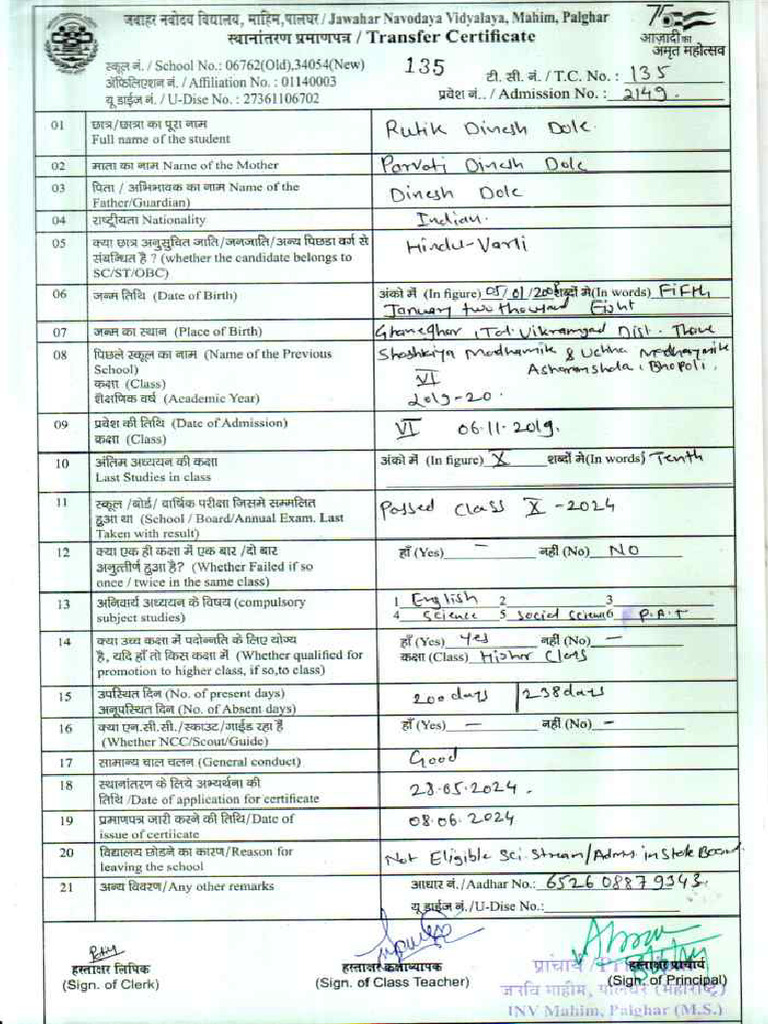 जवाहर नवोदय विद्यालय, माहिम,पालघर / Jawahar Navodaya Vidyalaya, Mahim, Palghar
स्थानांतरण प्रमाणपत्र / Transfer Certificate
75
आज़ादी का
अमृत महोत्सव
स्कूल नं. / School No.: 06762(Old),34054(New)
135
टी. सी. नं. / T.C. No. : 135
ॲफिलिएशन नं. / Affiliation No. : 01140003
यू डाईज नं. / U-Dise No. : 27361106702
प्रवेश नं.. / Admission No. : 2149.
01 छात्र/छात्रा का पूरा नाम Rutik Dinesh Dole.
Full name of the student
02 माता का नाम Name of the Mother Parvati Dinesh Dole
03 पिता / अभिभावक का नाम Name of the Dinesh Dole
Father/Guardian)
04 राष्ट्रीयता Nationality Indian.
05 क्या छात्र अनुसुचित जाति/जनजाति/अन्य पिछडा वर्ग से Hindu-Varli
संबधित है ? (whether the candidate belongs to
SC/ST/OBC)
06 जन्म तिथि (Date of Birth) अंको में (In figure) 05/01/2008 शब्दों में(In words) Fifth
January two thousand Eight
07 जन्म का स्थान (Place of Birth) Tal. Vikramgad Dist. Thane
08 पिछले स्कूल का नाम (Name of the Previous Shashkiya Madhamik & Uchha Madhaymik
School) Ashramshala, Bhopoli.
कक्षा (Class) VI
शैक्षणिक वर्ष (Academic Year) 2019-20.
09 प्रवेश की तिथि (Date of Admission) VI 06.11.2019.
कक्षा (Class)
10 अंतिम अध्ययन की कक्षा अंको में (In figure) X शब्दों में(In words) Tenth
Last Studies in class
11 स्कूल /बोर्ड/ वार्षिक परीक्षा जिसमे सम्मलित Passed Class X - 2024
हुआ था (School / Board/Annual Exam. Last
Taken with result)
12 क्या एक ही कक्षा में एक बार /दो बार हाँ (Yes) - नही (No) NO
अनुत्तीर्ण हुआ है? (Whether Failed if so
once / twice in the same class)
13 अनिवार्य अध्ययन के विषय (compulsory 1 English 2 3
subject studies) 4 Science 5 Social Science 6 P.A.T
14 क्या उच्च कक्षा में पदोन्नति के लिए योग्य हाँ (Yes) Yes नही (No) -
है, यदि हाँ तो किस कक्षा में (Whether qualified for कक्षा (Class) Higher Class
promotion to higher class, if so,to class)
15 उपस्थित दिन (No. of present days) 200 days / 238 days
अनुपस्थित दिन (No. of Absent days)
16 क्या एन.सी.सी./स्काउट/गाईड रहा है हाँ (Yes) - नही (No) -
(Whether NCC/Scout/Guide)
17 सामान्य चाल चलन (General conduct) Good
18 स्थानांतरण के लिये अभ्यर्थना की 28.05.2024.
तिथि /Date of application for certificate
19 प्रमाणपत्र जारी करने की तिथि/Date of 08.06.2024
issue of certiicate
20 विद्यालय छोडने का कारण/Reason for Not Eligible Sci. Stream/Admn. in State Board.
leaving the school
21 अन्य विवरण/Any other remarks आधार नं./Aadhar No.: 6526 0887 9343.
यू डाईज नं./U-Dise No.:
हस्ताक्षर लिपिक हस्ताक्षर कक्षाध्यापक हस्ताक्षर प्राचार्य
(Sign. of Clerk) (Sign. of Class Teacher) (Sign. of Principal)
प्राचार्य
जनवि माहीम, पालघर (महाराष्ट्र)
JNV Mahim, Palghar (M.S.)